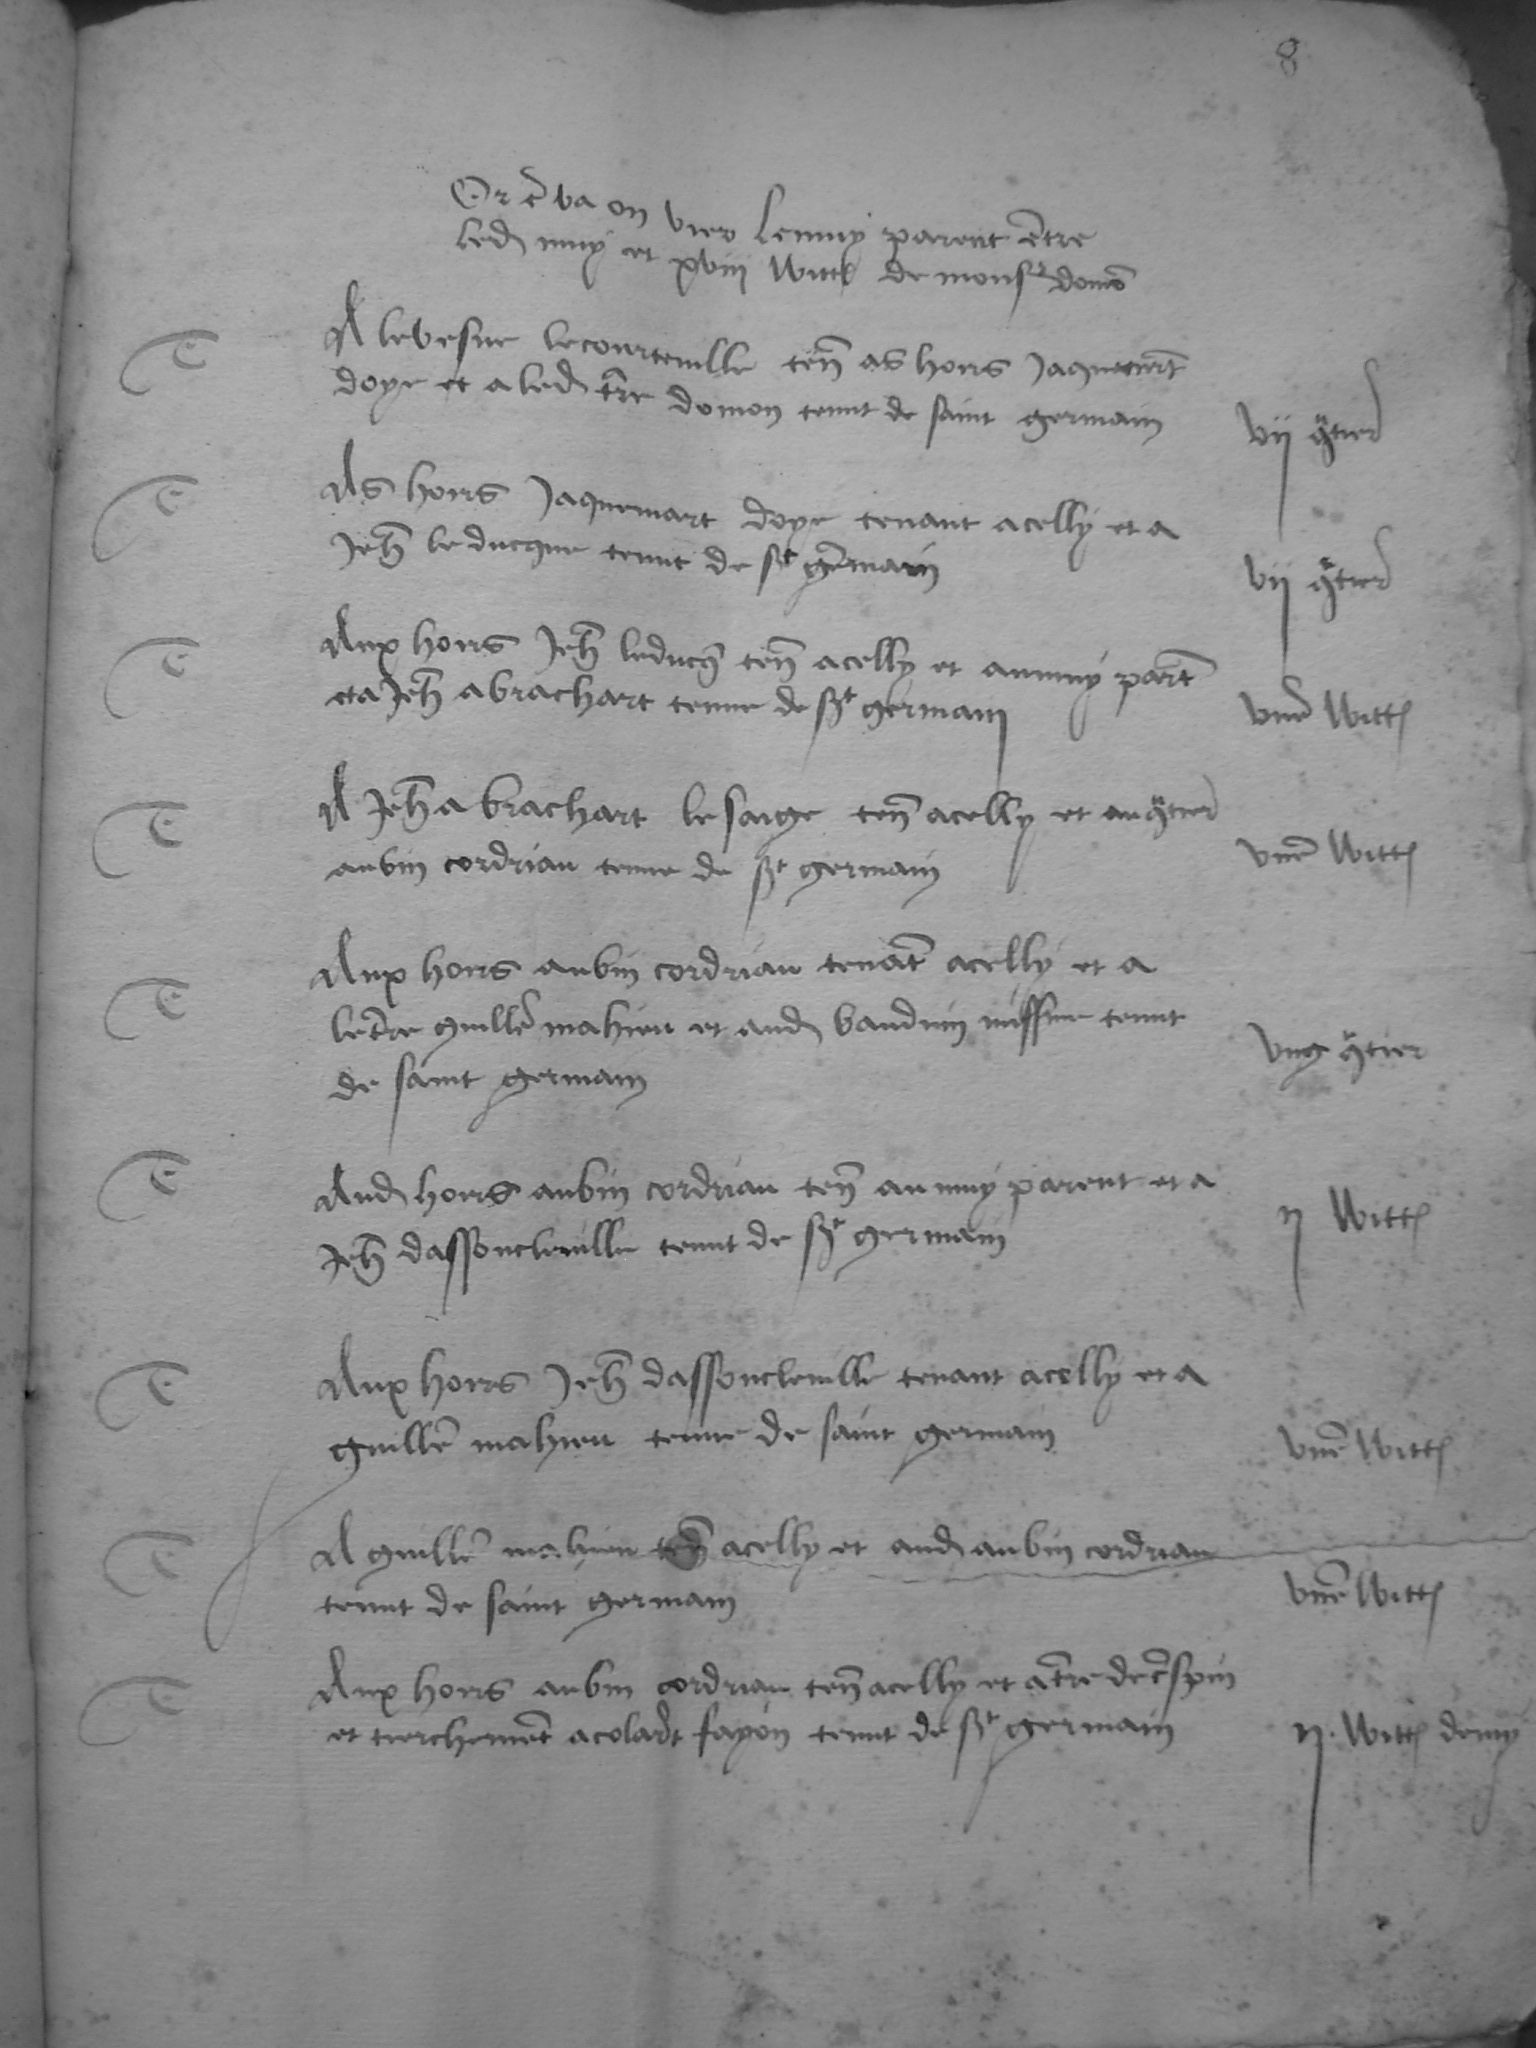 8
Or e va on vier lemuy parent etre
led muy et xviii Witt de monsr domo
A levesne lecourteville ten as hoirs Jaquemrt
doye et a led tre domon tenut de saint germain
vii qtier
As hoirs Jaquemart doye tenant acelly et a
Jeh leducque tenut de st germain
vii qtier
Aux hoirs Jeh leducq ten acelly et aumuy paret
eta Jeh abrachart tenue de st germain
vne Witt
A Jeh abrachart lesaige ten acelly et au qtier
aubin cordrian tenue de st germain
vne Witt
Aux hoirs aubin cordrian tenat acelly et a
letre guille mahieu et aud bauduin tenut
de saint germain
vng qtier
Aud hoirs aubin cordrian ten au muy parent et a
Jeh dassoncleville tenut de st germain
ii Witt
Aux hoirs Jeh dassoncleville tenant acelly et a
guille mahieu tenue de saint germain
vne Witt
A guille mahieu ten acelly et aud aubin cordrian
tenut de saint germain
vne Witt
Aux hoirs aubin cordrian ten acelly et atre de crespin
et tierchemet acolart fayon tenut de st germain
ii Witt demy